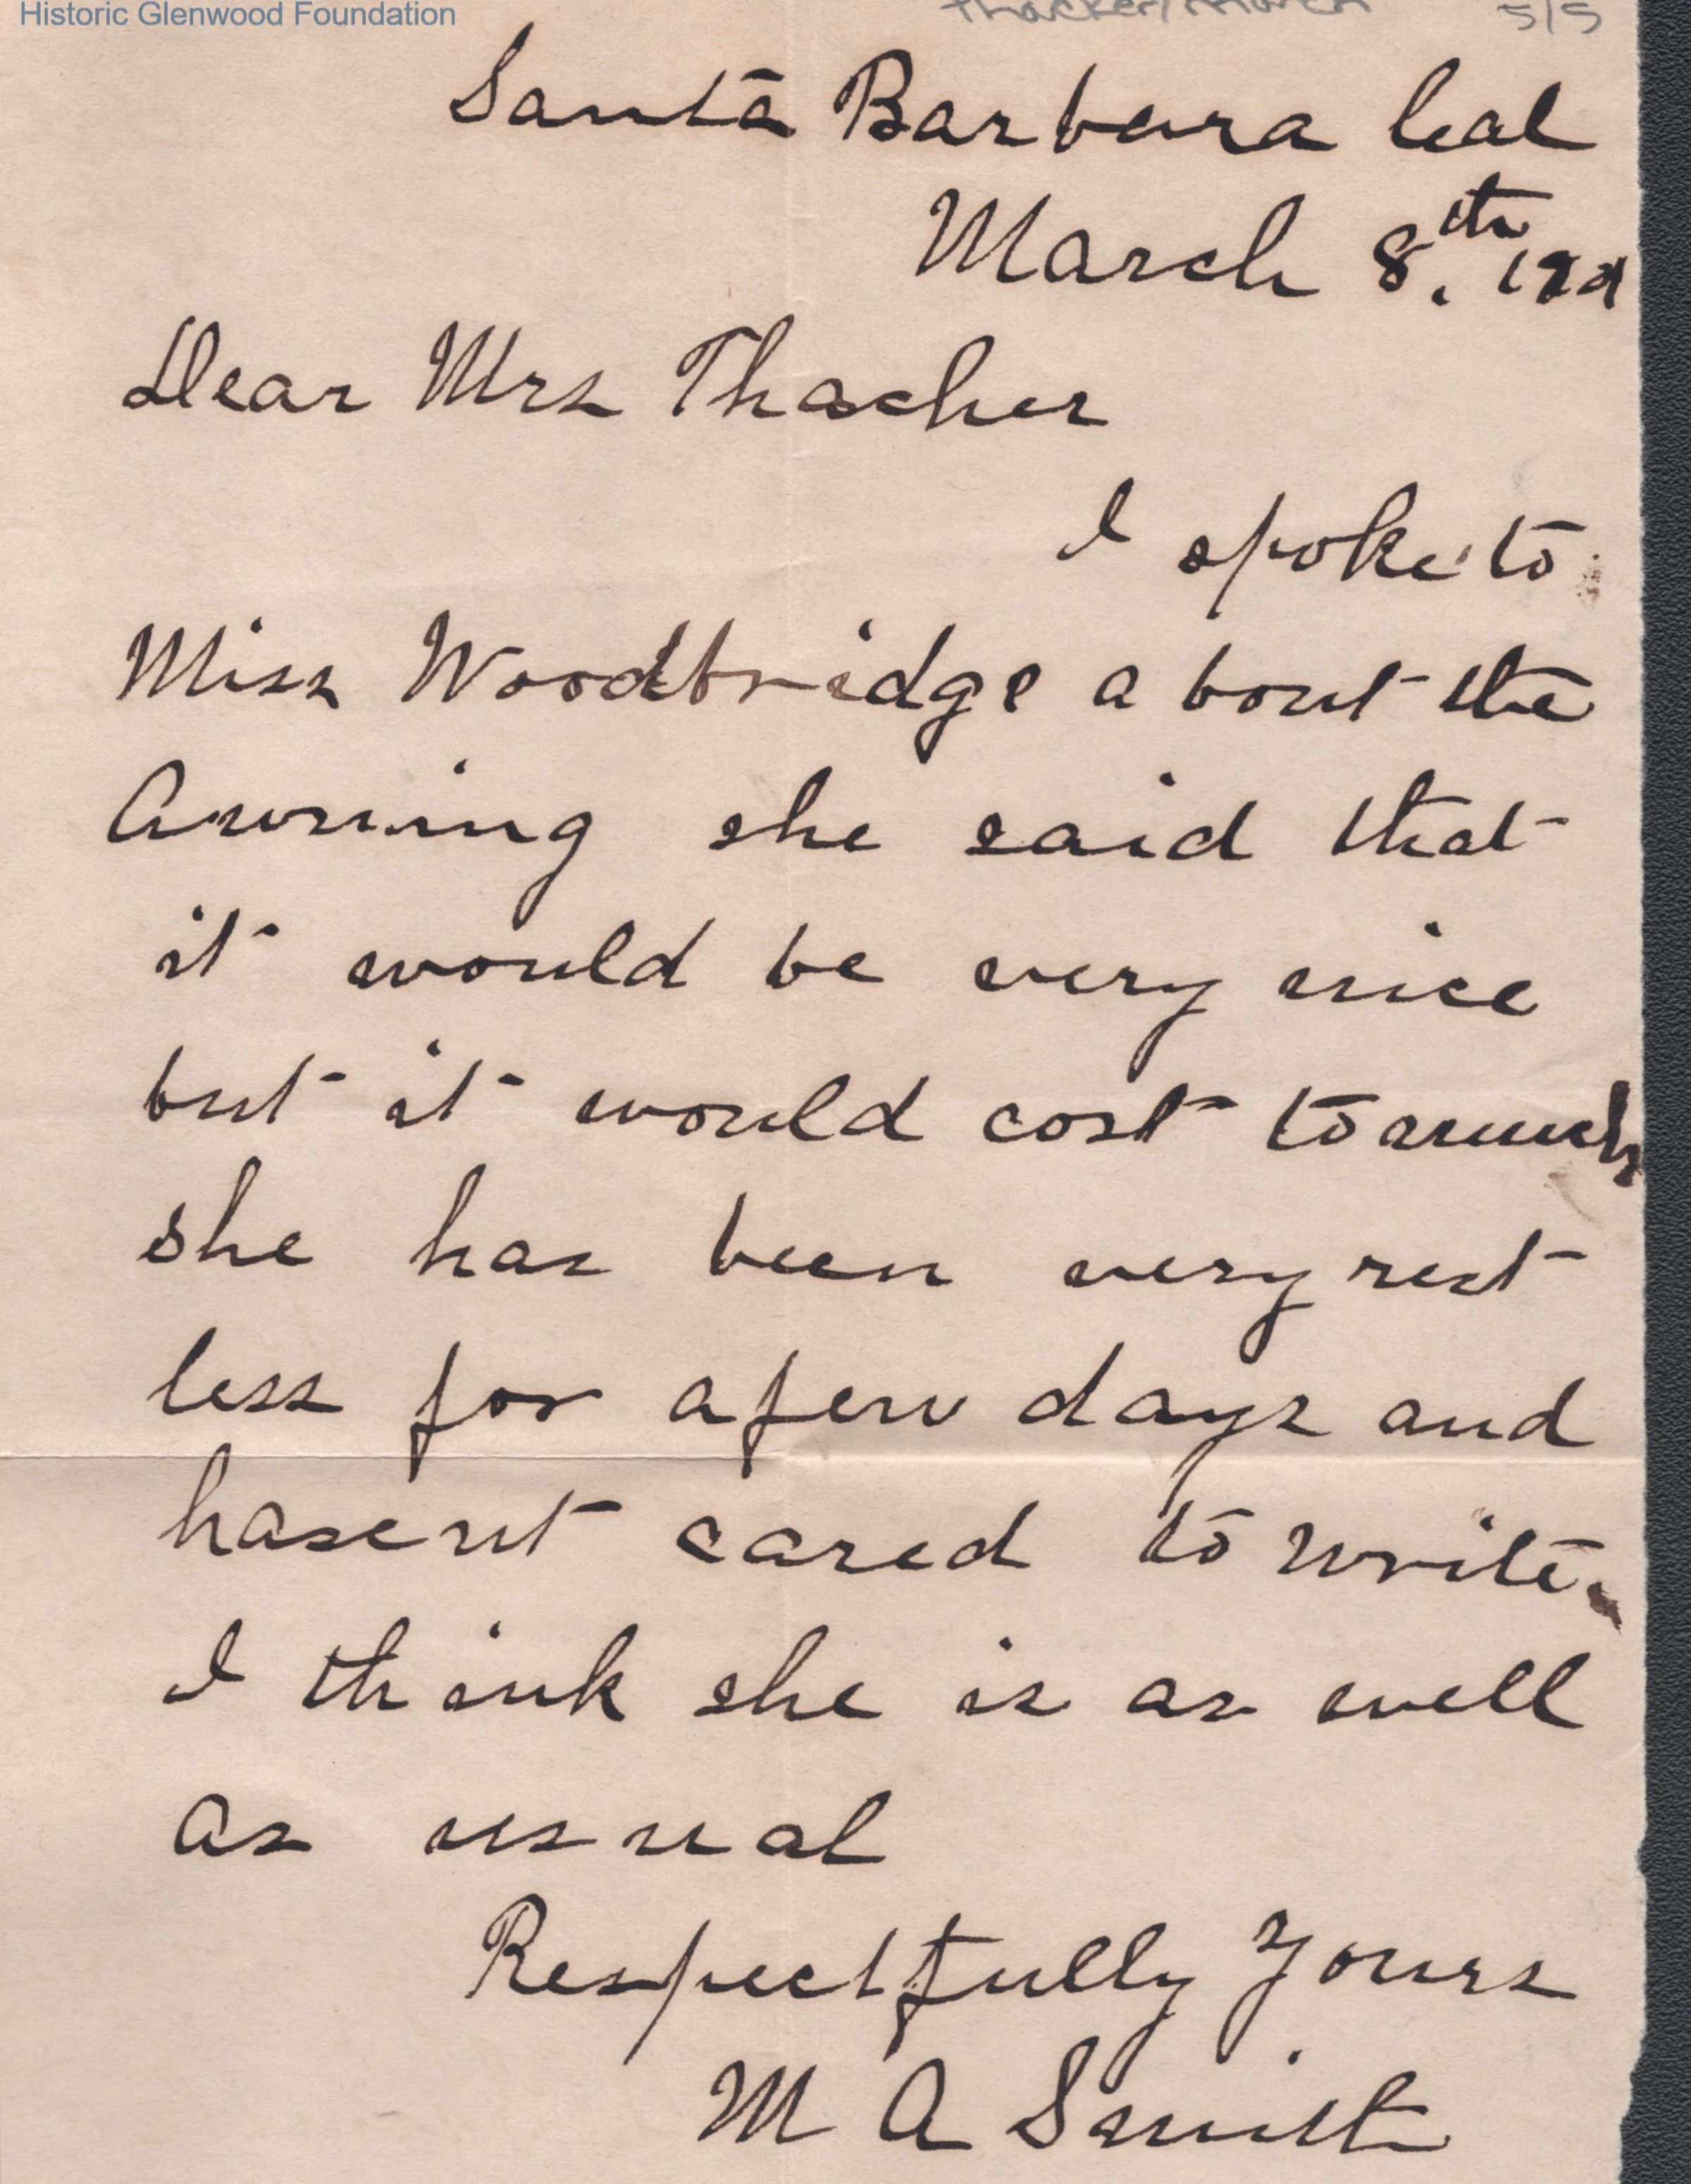 Historic Glenwood Foundation
5/5
Santa Barbara Cal
March 8.th
Dear Mrs Thacher
I spoke to
Miss Woodbridge a bout the
Awning she said that
it would be very nice
but it would cost to much
she has been very rest
less for a few days and
hasent cared to write.
I think she is as well
as usual
Respectfully Yours
M A Smith